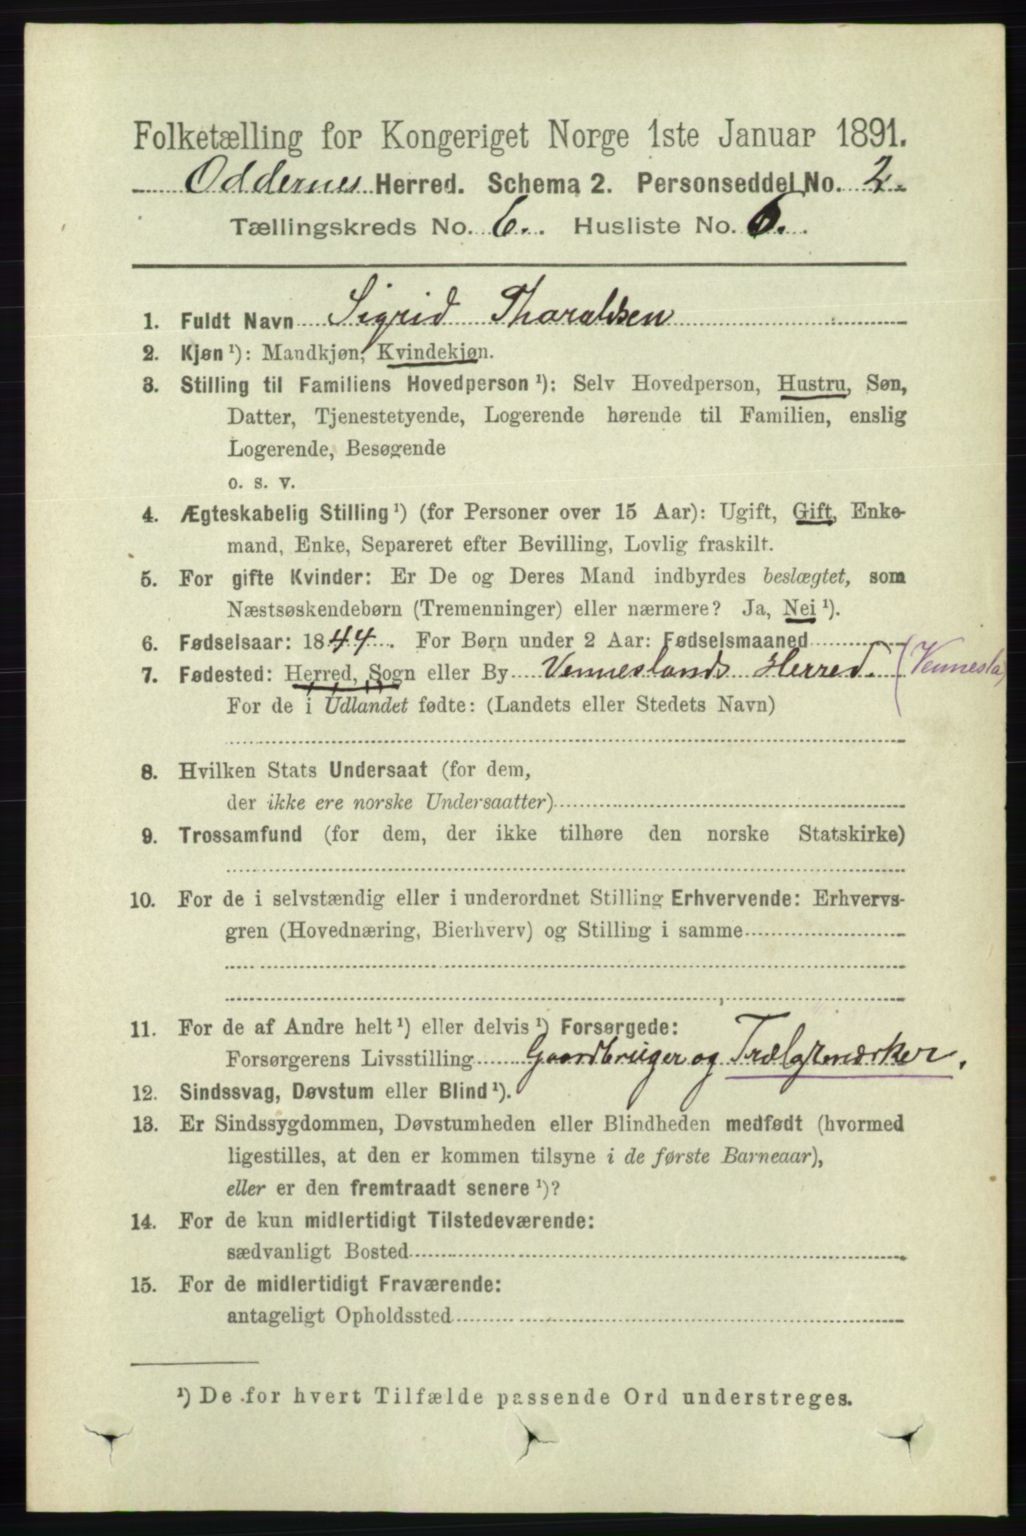 Folketælling for Kongeriget Norge 1ste Januar 1891.
Oddernes Herred. Schema 2. Personseddel No. 2.
Tællingskreds No. 6. Husliste No. 6.
1. Fuldt Navn Sigrid Tharaldsen
2. Kjøn ¹): Mandkjøn, Kvindekjøn.
3. Stilling til Familiens Hovedperson ¹): Selv Hovedperson, Hustru, Søn,
Datter, Tjenestetyende, Logerende hørende til Familien, enslig
Logerende, Besøgende
o. s. v.
4. Ægteskabelig Stilling ¹) (for Personer over 15 Aar): Ugift, Gift, Enke-
mand, Enke, Separeret efter Bevilling, Lovlig fraskilt.
5. For gifte Kvinder: Er De og Deres Mand indbyrdes beslægtet, som
Næstsøskendebørn (Tremenninger) eller nærmere? Ja, Nei ¹).
6. Fødselsaar: 1844. For Børn under 2 Aar: Fødselsmaaned
7. Fødested: Herred, Sogn eller By Venneslands Herred. (Vennesla)
For de i Udlandet fødte: (Landets eller Stedets Navn)
8. Hvilken Stats Undersaat (for dem,
der ikke ere norske Undersaatter)
9. Trossamfund (for dem, der ikke tilhøre den norske Statskirke)
10. For de i selvstændig eller i underordnet Stilling Erhvervende: Erhvervs-
gren (Hovednæring, Bierhverv) og Stilling i samme
11. For de af Andre helt ¹) eller delvis ¹) Forsørgede:
Forsørgerens Livsstilling Gaardbruger og
12. Sindssvag, Døvstum eller Blind ¹).
13. Er Sindssygdommen, Døvstumheden eller Blindheden medfødt (hvormed
ligestilles, at den er kommen tilsyne i de første Barneaar),
eller er den fremtraadt senere ¹)?
14. For de kun midlertidigt Tilstedeværende:
sædvanligt Bosted
15. For de midlertidigt Fraværende:
antageligt Opholdssted
¹) De for hvert Tilfælde passende Ord understreges.